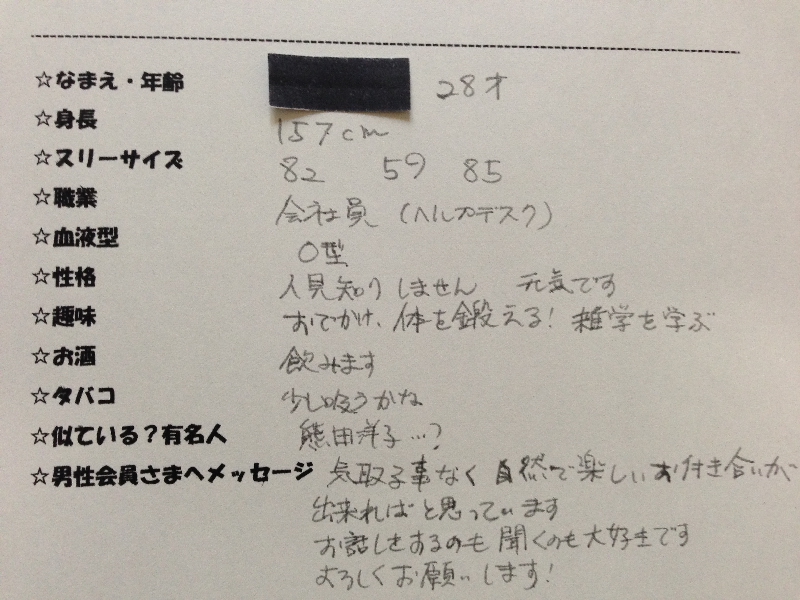 ☆なまえ・年齢 28才
☆身長 157cm
☆スリーサイズ 82 59 85
☆職業 会社員 (ヘルプデスク)
☆血液型 O型
☆性格 人見知りしません 元気です
☆趣味 おでかけ、体を鍛える! 雑学を学ぶ
☆お酒 飲みます
☆タバコ 少し吸うかな
☆似ている?有名人 熊田洋子…?
☆男性会員さまへメッセージ 気取る事なく 自然で楽しいお付き合いが
出来ればと思っています
お話しをするのも聞くのも大好きです
よろしくお願いします!